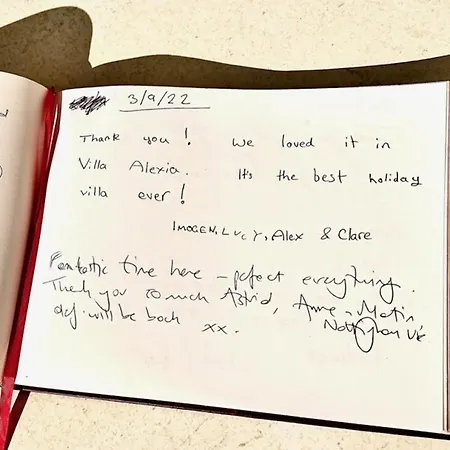 3/9/22
Thank you! We loved it in
Villa Alexia. It's the best holiday
villa ever!
IMOGEN, LUCY, Alex & Clare
Fantastic time here - perfect everything.
Thank you so much Astrid, Anne - Martin
def. will be back xx.
Nottingham UK